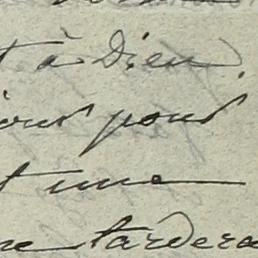 t à Dieu
jour pour
t une
ne tardera